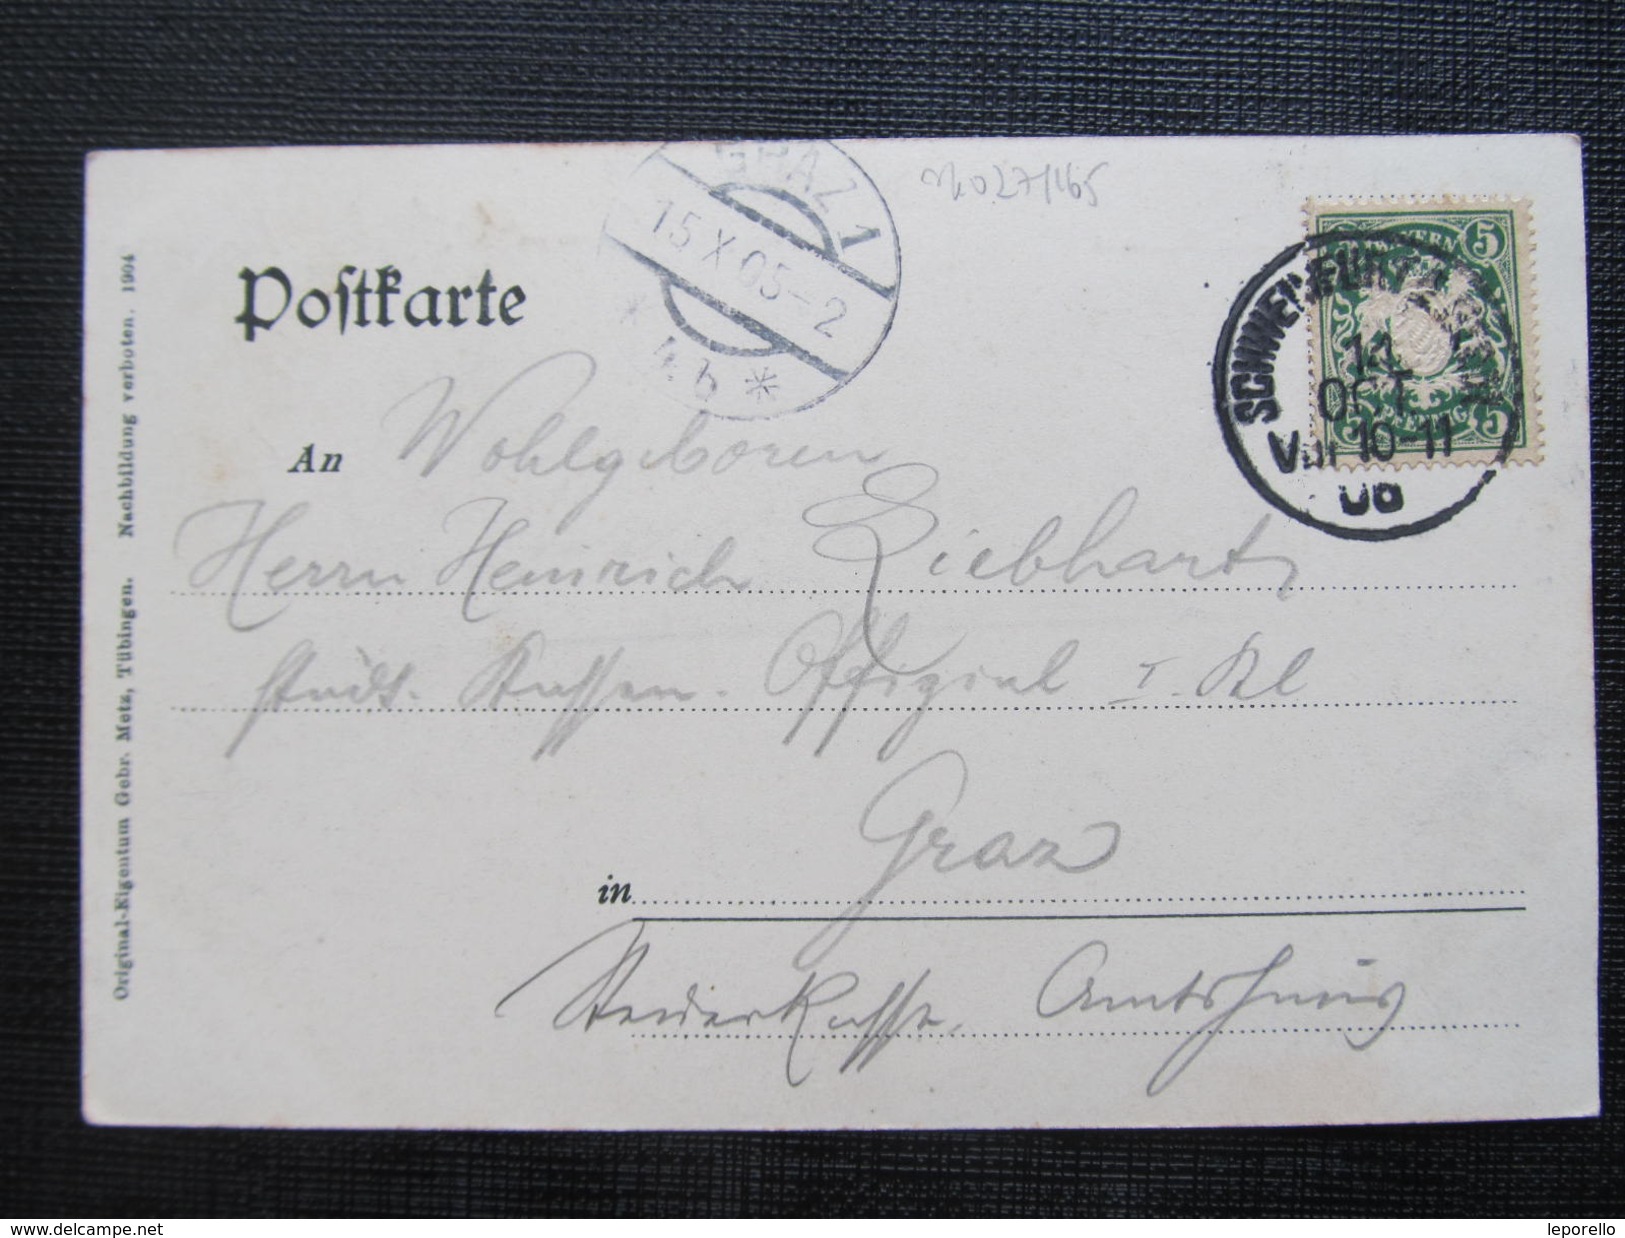 GRAZ 1
15 X 05-2
* 4b *
Postkarte
BAYERN
5 5
PFENNIG
5 5
SCHWEINFURT
14
OCT.
Vor 10-11
An Wohlgeboren
Herrn Heinrich Liebhart
städt. Kassen. Offizial I. Kl
in Graz
Amtshaus
Original-Eigentum Gebr. Metz, Tübingen. Nachbildung verboten. 1904
www.delcampe.net
leporello